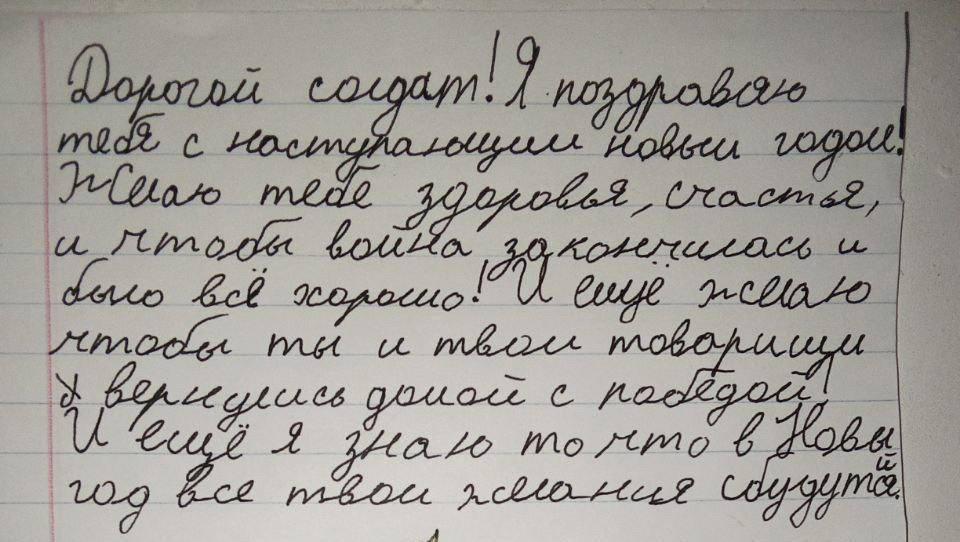 Дорогой солдат! Я поздраваю
тебя с наступающим новым годом!
Желаю тебе здоровья, счастья,
и чтобы война закончилась и
было всё хорошо! И ещё желаю
чтобы ты и твои товарищи
вернулись домой с победой!
И ещё я знаю то что в Новый
год все твои желания сбудутся.